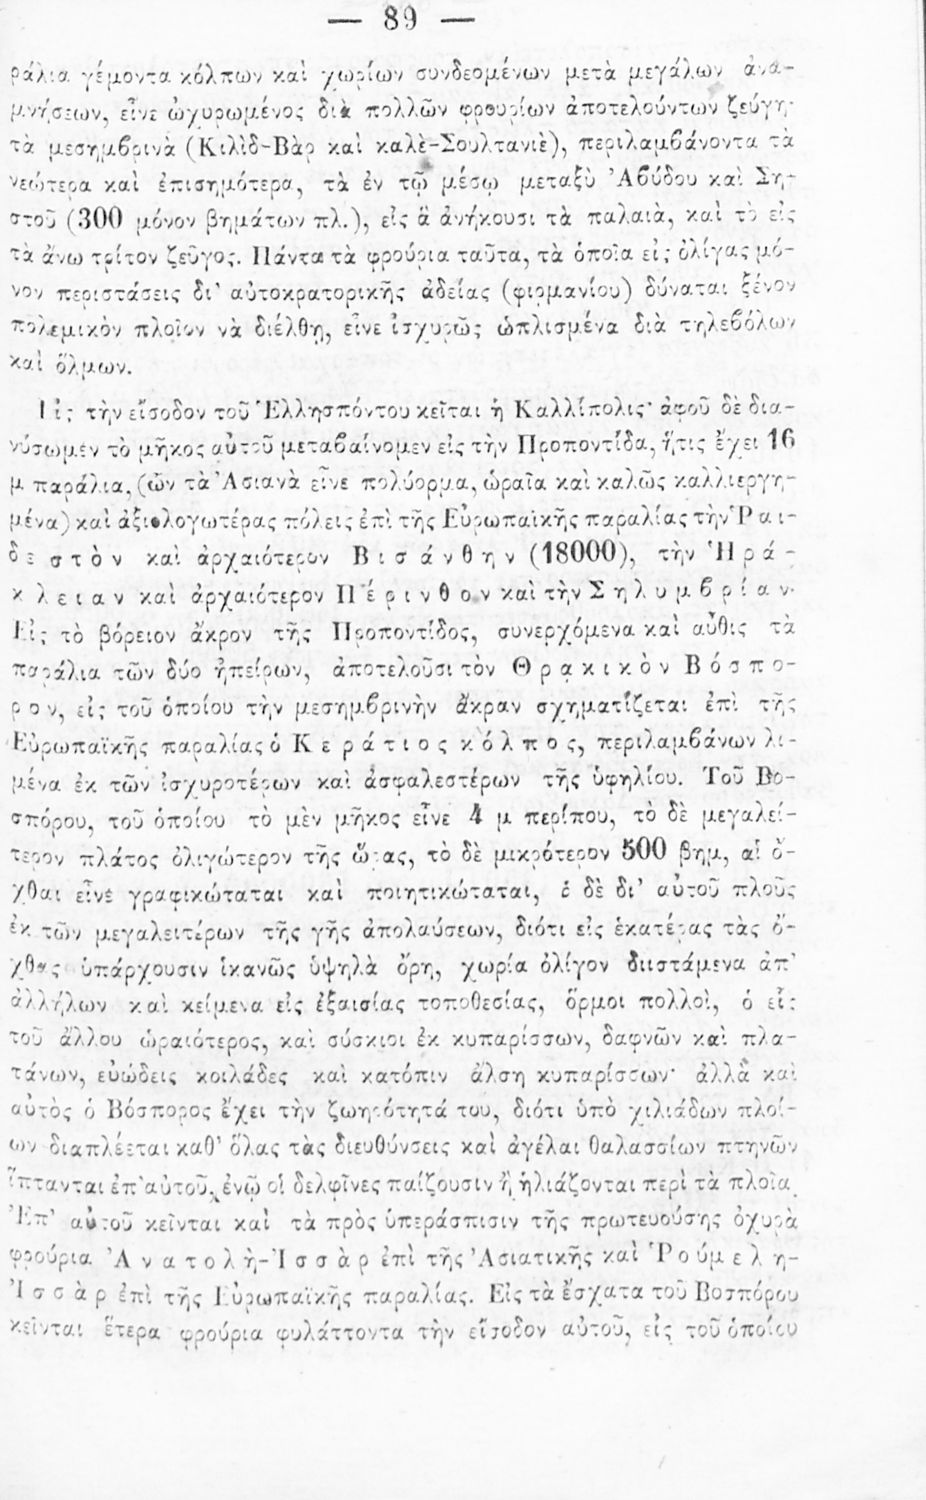 — 89 —
ράλια γέμοντα κόλπων καὶ χωρίων συνδεομένων μετὰ μεγάλων ἀνα-
μνήσεων, εἶνε ὠχυρωμένος διὰ πολλῶν φρουρίων ἀποτελούντων ζεύγη·
τὰ μεσημβρινὰ (Κιλὶδ-Βὰρ καὶ καλὲ-Σουλτανιὲ), περιλαμβάνοντα τὰ
νεώτερα καὶ ἐπισημότερα, τὰ ἐν τῷ μέσῳ μεταξὺ Ἀβύδου καὶ Ση-
στοῦ (300 μόνον βημάτων πλ.), εἰς ἃ ἀνήκουσι τὰ παλαιὰ, καὶ τὸ εἰς
τὰ ἄνω τρίτον ζεῦγος. Πάντα τὰ φρούρια ταῦτα, τὰ ὁποῖα εἰς ὀλίγας μό-
νον περιστάσεις δι' αὐτοκρατορικῆς ἀδείας (φιρμανίου) δύναται ξένον
πολεμικὸν πλοῖον νὰ διέλθῃ, εἶνε ἰσχυρῶς ὡπλισμένα διὰ τηλεβόλων
καὶ ὅλμων.
Εἰς τὴν εἴσοδον τοῦ Ἑλλησπόντου κεῖται ἡ Καλλίπολις· ἀφοῦ δὲ δια-
νύσωμεν τὸ μῆκος αὐτοῦ μεταβαίνομεν εἰς τὴν Προποντίδα, ἥτις ἔχει 16
μ παράλια, (ὧν τὰ Ἀσιανὰ εἶνε πολύορμα, ὡραῖα καὶ καλῶς καλλιεργη-
μένα) καὶ ἀξιολογωτέρας πόλεις ἐπὶ τῆς Εὐρωπαϊκῆς παραλίας τὴν Ῥαι-
δεστὸν καὶ ἀρχαιότερον Βισάνθην (18000), τὴν Ἡρά-
κλειαν καὶ ἀρχαιότερον Πέρινθον καὶ τὴν Σηλυμβρίαν.
Εἰς τὸ βόρειον ἄκρον τῆς Προποντίδος, συνερχόμενα καὶ αὖθις τὰ
παράλια τῶν δύο ἠπείρων, ἀποτελοῦσι τὸν Θρᾳκικὸν Βόσπο-
ρον, εἰς τοῦ ὁποίου τὴν μεσημβρινὴν ἄκραν σχηματίζεται ἐπὶ τῆς
Εὐρωπαϊκῆς παραλίας ὁ Κεράτιος κόλπος, περιλαμβάνων λι-
μένα ἐκ τῶν ἰσχυροτέρων καὶ ἀσφαλεστέρων τῆς ὑφηλίου. Τοῦ Βο-
σπόρου, τοῦ ὁποίου τὸ μὲν μῆκος εἶνε 4 μ περίπου, τὸ δὲ μεγαλεί-
τερον πλάτος ὀλιγώτερον τῆς ὥρας, τὸ δὲ μικρότερον 500 βημ, αἱ ὄ-
χθαι εἶνε γραφικώταται καὶ ποιητικώταται, ὁ δὲ δι' αὐτοῦ πλοῦς
ἐκ τῶν μεγαλειτέρων τῆς γῆς ἀπολαύσεων, διότι εἰς ἑκατέρας τὰς ὄ-
χθας ὑπάρχουσιν ἱκανῶς ὑψηλὰ ὄρη, χωρία ὀλίγον διιστάμενα ἀπ'
ἀλλήλων καὶ κείμενα εἰς ἐξαισίας τοποθεσίας, ὅρμοι πολλοὶ, ὁ εἷς
τοῦ ἄλλου ὡραιότερος, καὶ σύσκιοι ἐκ κυπαρίσσων, δαφνῶν καὶ πλα-
τάνων, εὐώδεις κοιλάδες καὶ κατόπιν ἄλση κυπαρίσσων· ἀλλὰ καὶ
αὐτὸς ὁ Βόσπορος ἔχει τὴν ζωηρότητά του, διότι ὑπὸ χιλιάδων πλοί-
ων διαπλέεται καθ' ὅλας τὰς διευθύνσεις καὶ ἀγέλαι θαλασσίων πτηνῶν
ἵπτανται ἐπ' αὐτοῦ, ἐνῷ οἱ δελφῖνες παίζουσιν ἢ ἡλιάζονται περὶ τὰ πλοῖα.
Ἐπ' αὐτοῦ κεῖνται καὶ τὰ πρὸς ὑπεράσπισιν τῆς πρωτευούσης ὀχυρὰ
φρούρια Ἀνατολὴ-Ἰσσὰρ ἐπὶ τῆς Ἀσιατικῆς καὶ Ῥούμελη-
Ἰσσὰρ ἐπὶ τῆς Εὐρωπαϊκῆς παραλίας. Εἰς τὰ ἔσχατα τοῦ Βοσπόρου
κεῖνται ἕτερα φρούρια φυλάττοντα τὴν εἴσοδον αὐτοῦ, εἰς τοῦ ὁποίου